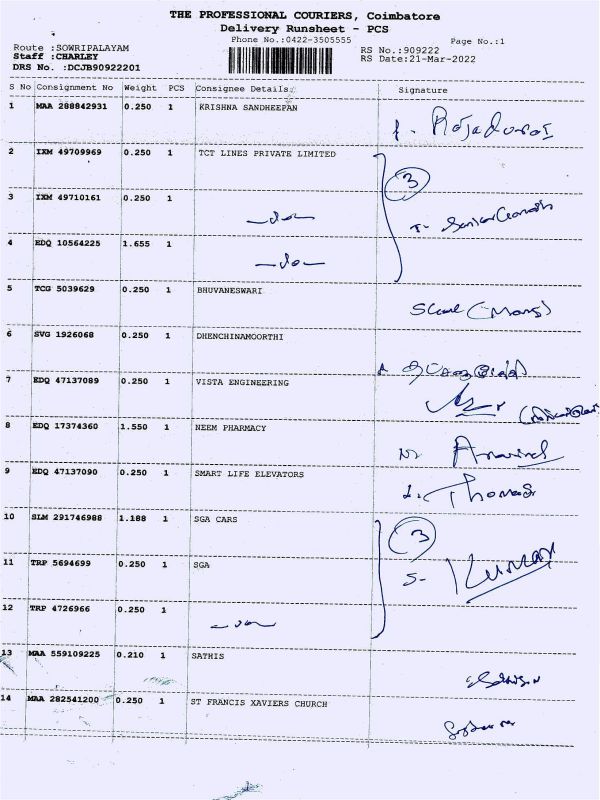 THE PROFESSIONAL COURIERS, Coimbatore
Delivery Runsheet - PCS
Phone No.:0422-3505555
Page No.:1
Route :SOWRIPALAYAM
Staff :CHARLEY
DRS No. :DCJB90922201
RS No.:909222
RS Date:21-Mar-2022
S No Consignment No Weight PCS Consignee Details Signature
1 MAA 288842931 0.250 1 KRISHNA SANDHEEPAN
2 IXM 49709969 0.250 1 TCT LINES PRIVATE LIMITED
3
3 IXM 49710161 0.250 1 -do-
4 EDQ 10564225 1.655 1 -do-
5 TCG 5039629 0.250 1 BHUVANESWARI
6 SVG 1926068 0.250 1 DHENCHINAMOORTHI
7 EDQ 47137089 0.250 1 VISTA ENGINEERING
8 EDQ 17374360 1.550 1 NEEM PHARMACY
Aravind
9 EDQ 47137090 0.250 1 SMART LIFE ELEVATORS
Thomas
10 SLM 291746988 1.188 1 SGA CARS
3
11 TRP 5694699 0.250 1 SGA
S- Kumar
12 TRP 4726966 0.250 1 -do-
13 MAA 559109225 0.210 1 SATHIS
14 MAA 282541200 0.250 1 ST FRANCIS XAVIERS CHURCH